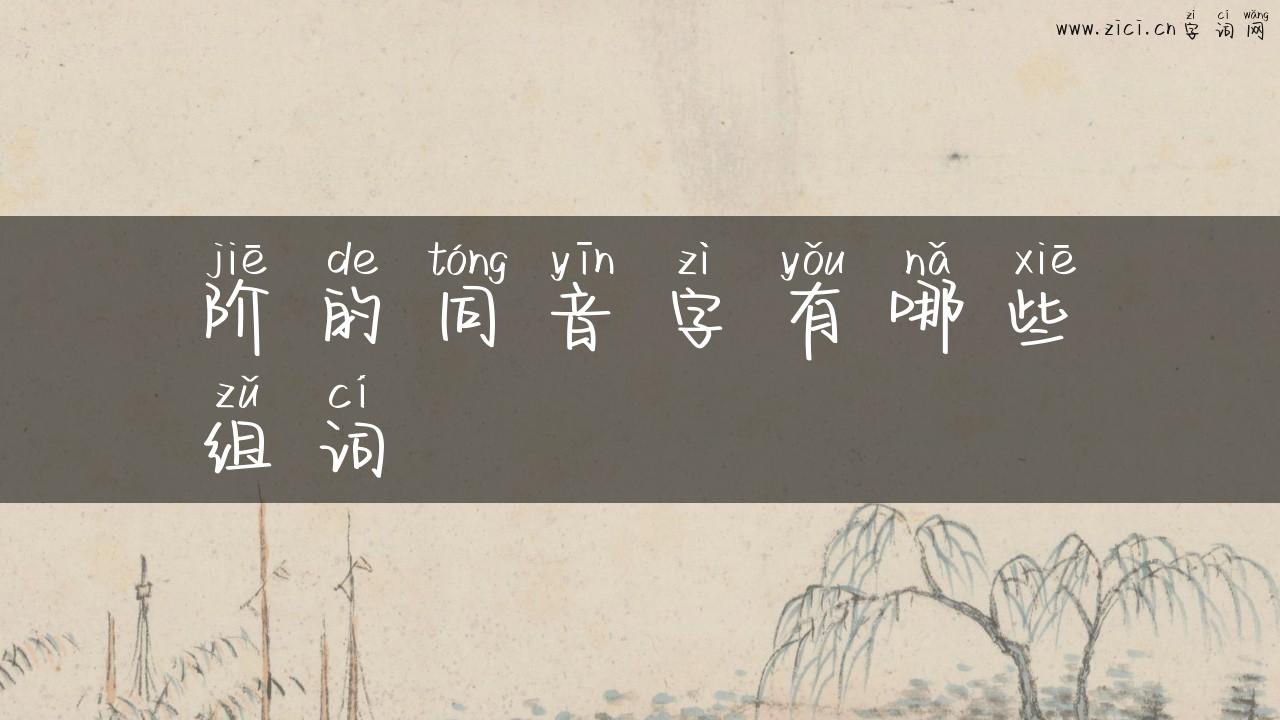 zì cí wǎng
www.zici.cn 字 词 网
jiē de tóng yīn zì yǒu nǎ xiē
阶 的 同 音 字 有 哪 些
zǔ cí
组 词